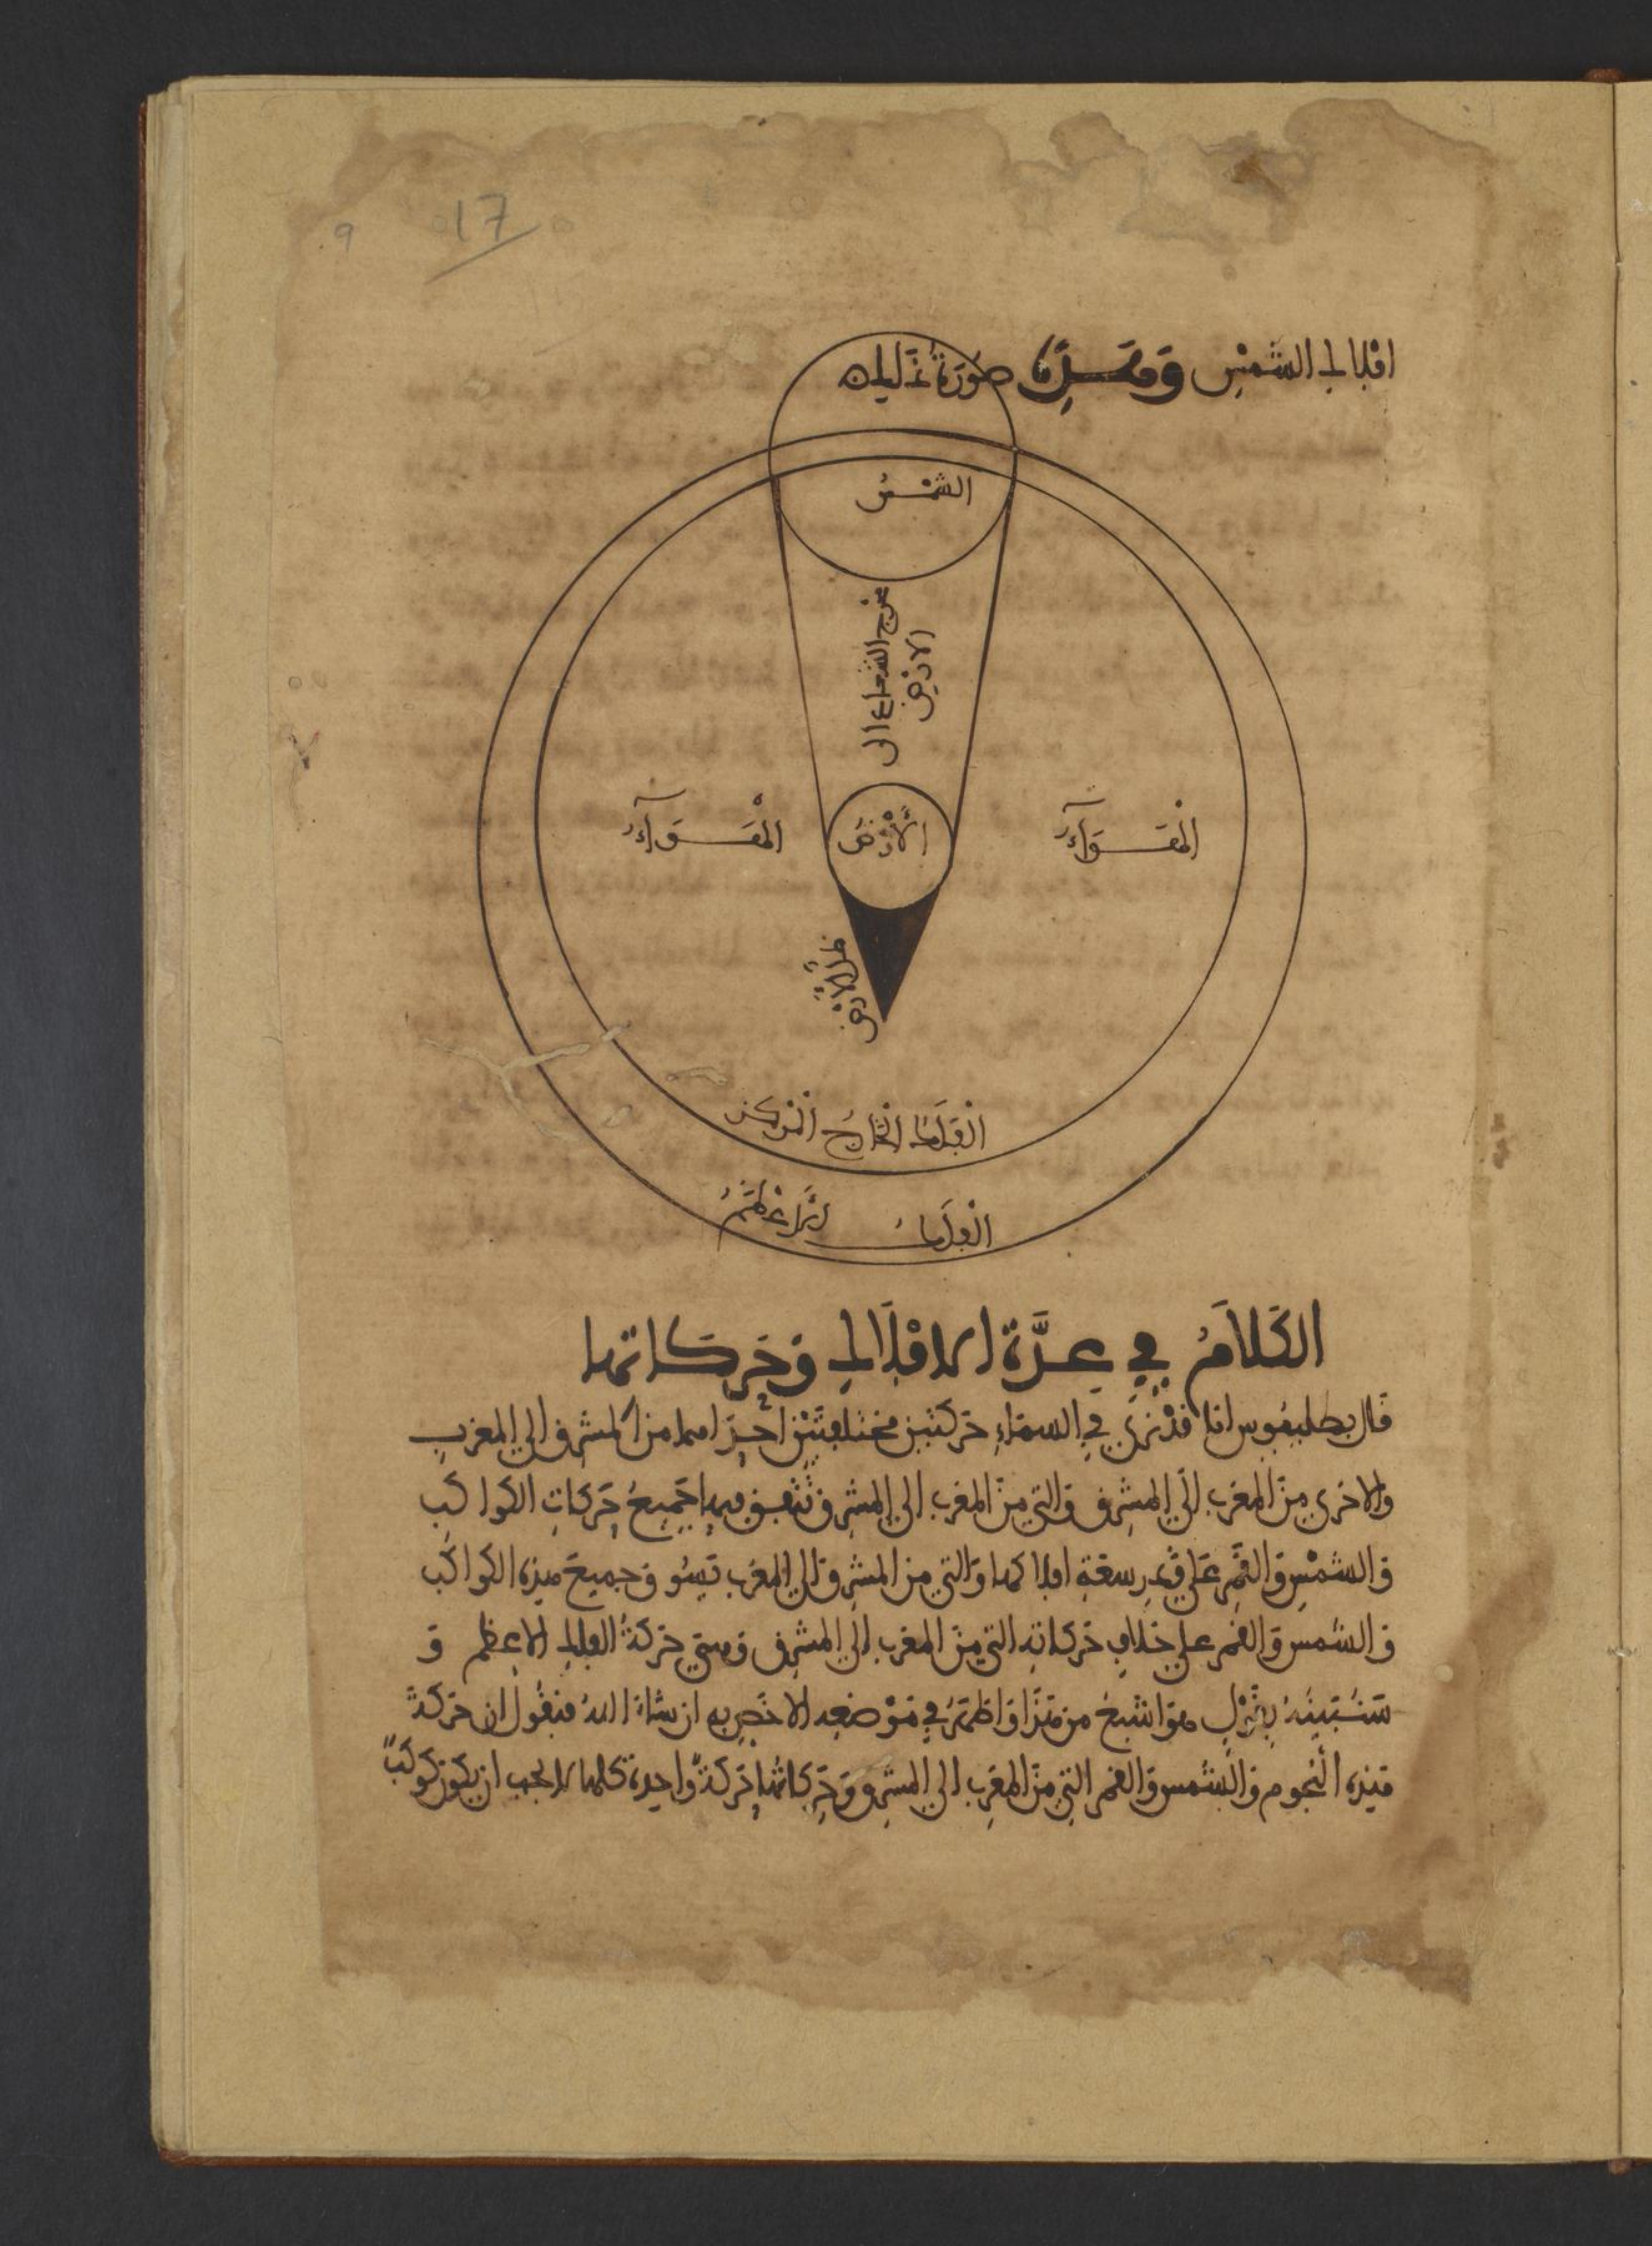 9
17
افلاك الشمس وهذه صورة ذلك
الشمس
مخرج الشعاع الى
الارض
الهواء
الأرض
الهواء
ظل الارض
الفلك الخارج المركز
الفلك الأعظم
الكلام في عدة الافلاك وحركاتها
قال بطليموس انا قد نرى في السماء حركتين مختلفتين احداهما من المشرق الى المغرب
والاخرى من المغرب الى المشرق والتي من المغرب الى المشرق تتفق فيها جميع حركات الكواكب
والشمس والقمر على قدر سعة افلاكها والتي من المشرق الى المغرب تسوق جميع هذه الكواكب
والشمس والقمر على خلاف حركاته التي من المغرب الى المشرق وهي حركة الفلك الاعظم و
سنبينه بقول هو اشبع من هذا واظهر في موضعه الاخص به ان شاء الله فنقول ان حركة
هذه النجوم والشمس والقمر التي من المغرب الى المشرق وحركاتها حركة واحدة كلها لا يجب ان يكون كوكبا